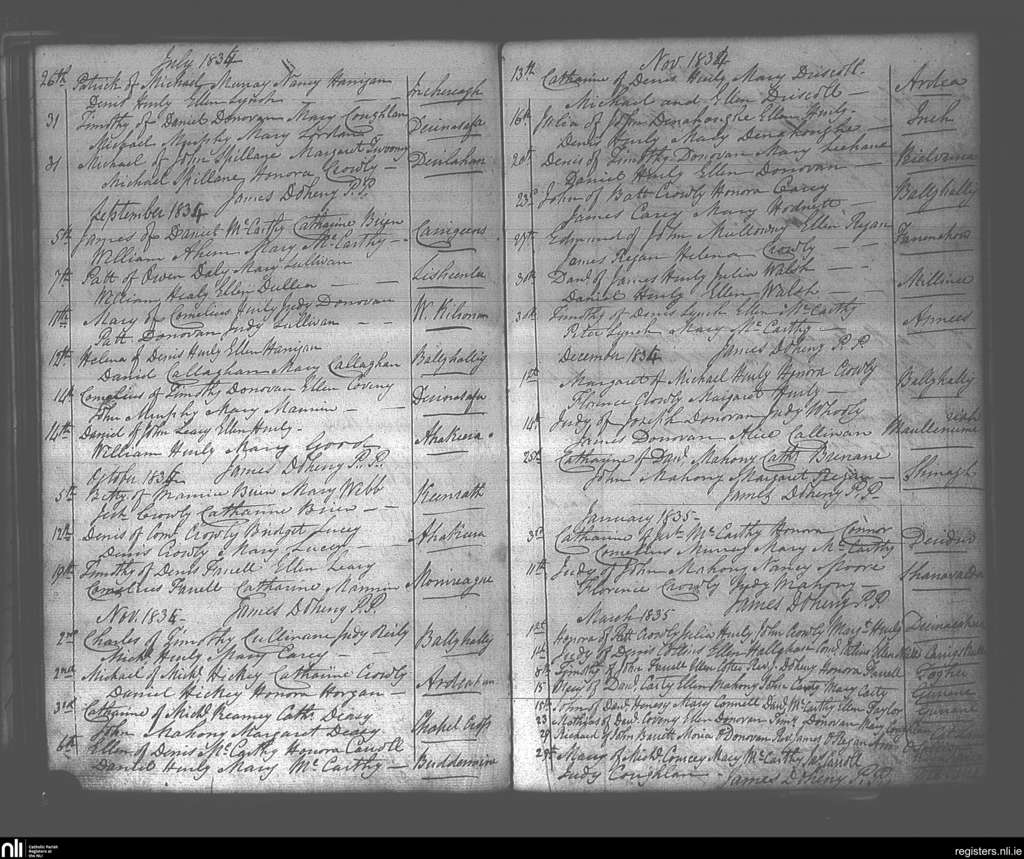 July 1834
26th Patrick of Michael Murray Nancy Hanigan
Denis Hurly Ellen Lynch — — Inchereagh
31 Timothy of Daniel Donovan Mary Coughlan
Michael Murphy Mary — Derinasafa
31 Michael of John Spillane Margaret Twoomy
Michael Spillane Honora Crowly — Derilahan
James Doheny P.P.
September 1834
5th James of Daniel McCarthy Catharine Brien
William Ahern Mary McCarthy — Carrigeens
7th Patt of Owen Daly Mary Sullivan
William Healy Ellen Dullea — Lisheenlea
11th Mary of Cornelius Hurly Judy Donovan
Patt Donovan Judy Sullivan — — W. Kilronan
12th Helena of Denis Hurly Ellen Hanigan
Daniel Callaghan Mary Callaghan Ballyhallig
14th Cornelius of Timothy Donovan Ellen Coveny
John Murphy Mary Mannin — Derinasafa
14th Daniel of John Leary Ellen Hurly —
William Hurly Mary Good Ahakeera
James Doheny P.P.
October 1834
5th Betty of Mannin Brien Mary Webb
Crowly Catharine Brien — — Keenrath
12th Denis of Corns. Crowly Bridget Lucey
Denis Crowly Mary Lucey — Ahakeera
19th Timothy of Denis Farrell Ellen Leary
Cornelius Farrell Catharine Mannin Monreague
James Doheny P.P.
Nov. 1834
2nd Charles of Timothy Cullinane Judy Reily
Michl. Hurly Mary Carey — Ballyhally
2nd Michael of Michl. Hickey Catharine Crowly
Daniel Hickey Honora Horgan — Ardcahan
3rd Catharine of Michl. Kearney Cath. Deasy
John Mahony Margaret Deasy Chapel Cross
6th Ellen of Denis McCarthy Honora Carroll
Daniel Hurly Mary McCarthy — Buddermine
Nov. 1834
13th Catharine of Denis Hurly Mary Driscoll —
Michael and Ellen Driscoll — Ardea
16th Julia of John Denahoughe Ellen Hurly —
Denis Hurly Mary Denahoughe — Inch
20th Denis of Timothy Donovan Mary Leehane
Daniel Hurly Ellen Donovan
23d John of Batt Crowly Honora Carey
James Carey Mary Hodnett — Ballyhally
25th Edmund of John Mullowny Ellen Ryan
James Ryan Helena Crowly Farrenhow
30th Danl. of James Hurly Julia Walsh
Daniel Hurly Ellen Walsh — — Milleine
30th Timothy of Denis Lynch Ellen McCarthy
Peter Lynch Mary McCarthy — Annees
James Doheny P.P.
December 1834
1st Margaret of Michael Hurly Honora Crowly
Florence Crowly Margaret Hurly — Ballyhally
14th Judy of Joseph Donovan Judy Whooly
James Donovan Alice Callinan
25th Catharine of Danl. Mahony Cath. Brenane
John Mahony Margaret Regan — Shinagh
James Doheny P.P.
January 1835 —
3rd Catharine of Wm. McCarthy Honora Connor
Cornelius Murray Mary McCarthy
11th Judy of John Mahony Nancy Spoore
Florence Crowly Judy Mahony — Shanavalla
James Doheny P.P.
March 1835
1st Honora of Patt Crowly Julia Hurly John Crowly Mary Hurly
1st Judy of Denis Collins Ellen Hallyhan
8th Timothy of John Farrell Ellen Cotter Revd. J Doheny Honora Farrell Togher
15 of Danl. Carty Ellen Mahony John Carty Mary Carty
15th John of Danl. Mary Connell Danl. McCarthy Ellen Taylor
23 Mathias of Danl. Coveny Ellen Donovan Timy. Donovan Mary Coughlan
29 Richard of John Barrett Moria O Donovan Revd. James O Regan
29th Mary of Michl. Coursey Mary McCarthy
Judy Coughlan — James Doheny P.P.
nli
Catholic Parish
Registers at
the NLI
registers.nli.ie